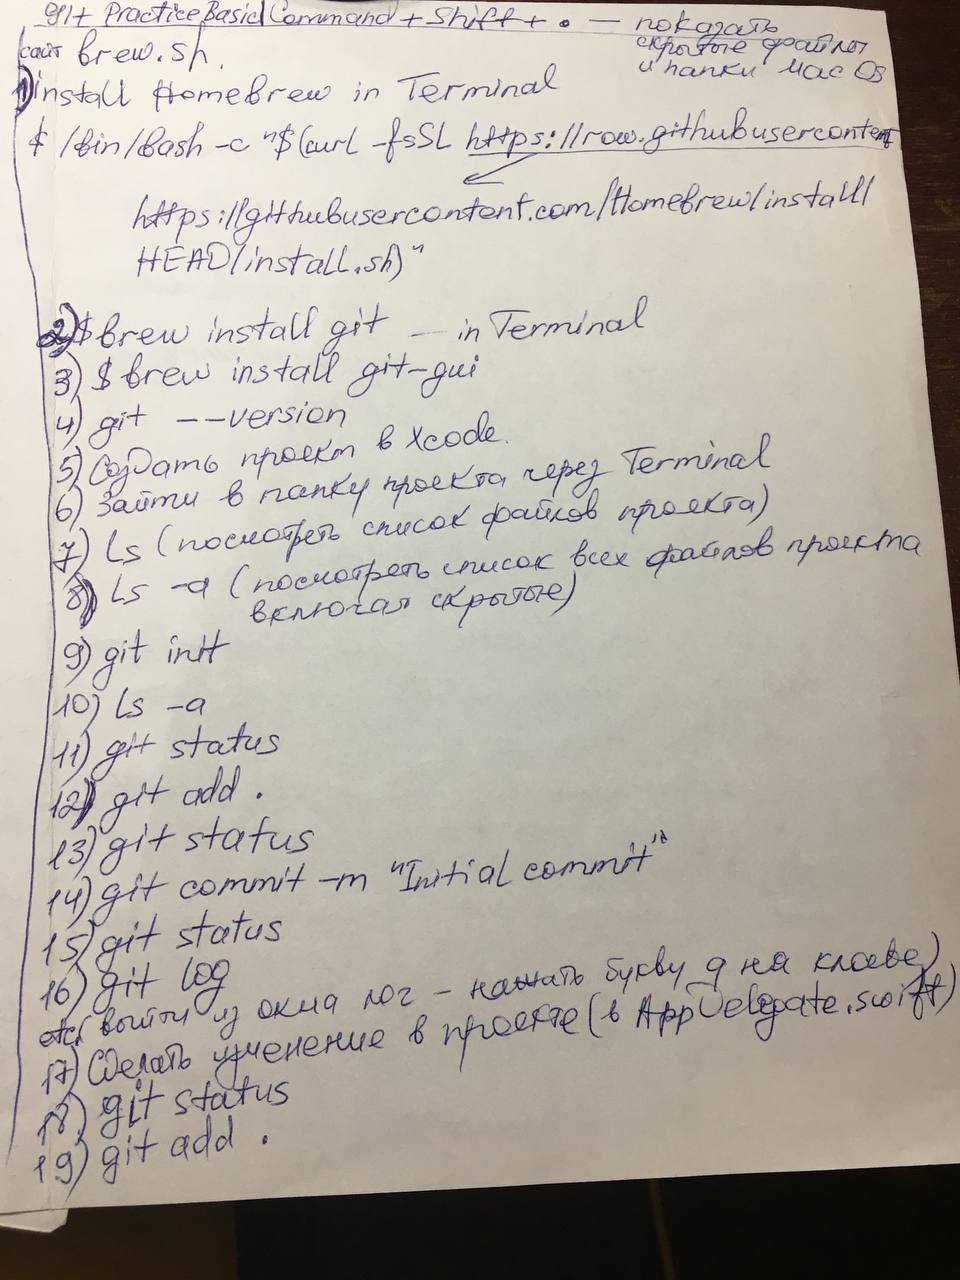 git Practice Basic Command + Shift + . — показать
скрытые файлы
и папки Mac OS
сайт brew.sh.
1) install Homebrew in Terminal
$ /bin/bash -c "$(curl -fsSL https://raw.githubusercontent
https://githubusercontent.com/Homebrew/install/
HEAD/install.sh)"
2) $ brew install git — in Terminal
3) $ brew install git-gui
4) git --version
5) Создать проект в Xcode.
6) Зайти в папку проекта через Terminal
7) Ls (посмотреть список файлов проекта)
8) Ls -a (посмотреть список всех файлов проекта
включая скрытые)
9) git init
10) Ls -a
11) git status
12) git add .
13) git status
14) git commit -m "Initial commit"
15) git status
16) git log
(выйти из окна лог - нажать букву q на клаве)
17) Сделать изменение в проекте (в AppDelegate.swift)
18) git status
19) git add .